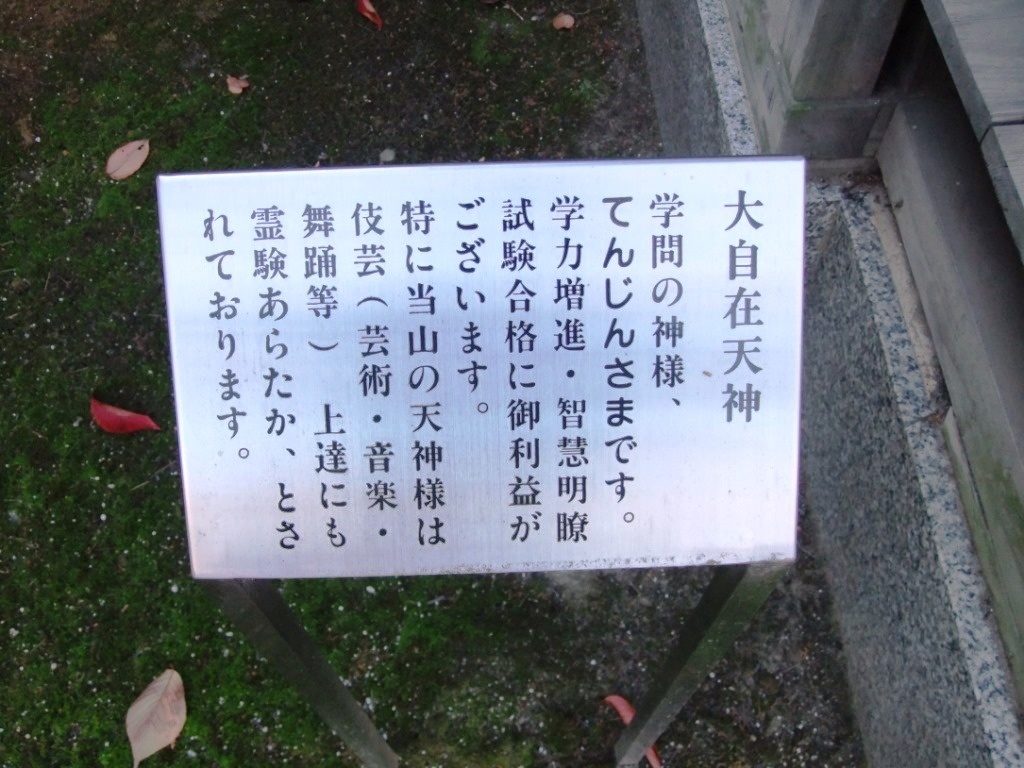 大自在天神
学問の神様、
てんじんさまです。
学力増進・智慧明瞭
試験合格に御利益が
ございます。
特に当山の天神様は
伎芸(芸術・音楽・
舞踊等) 上達にも
霊験あらたか、とさ
れております。